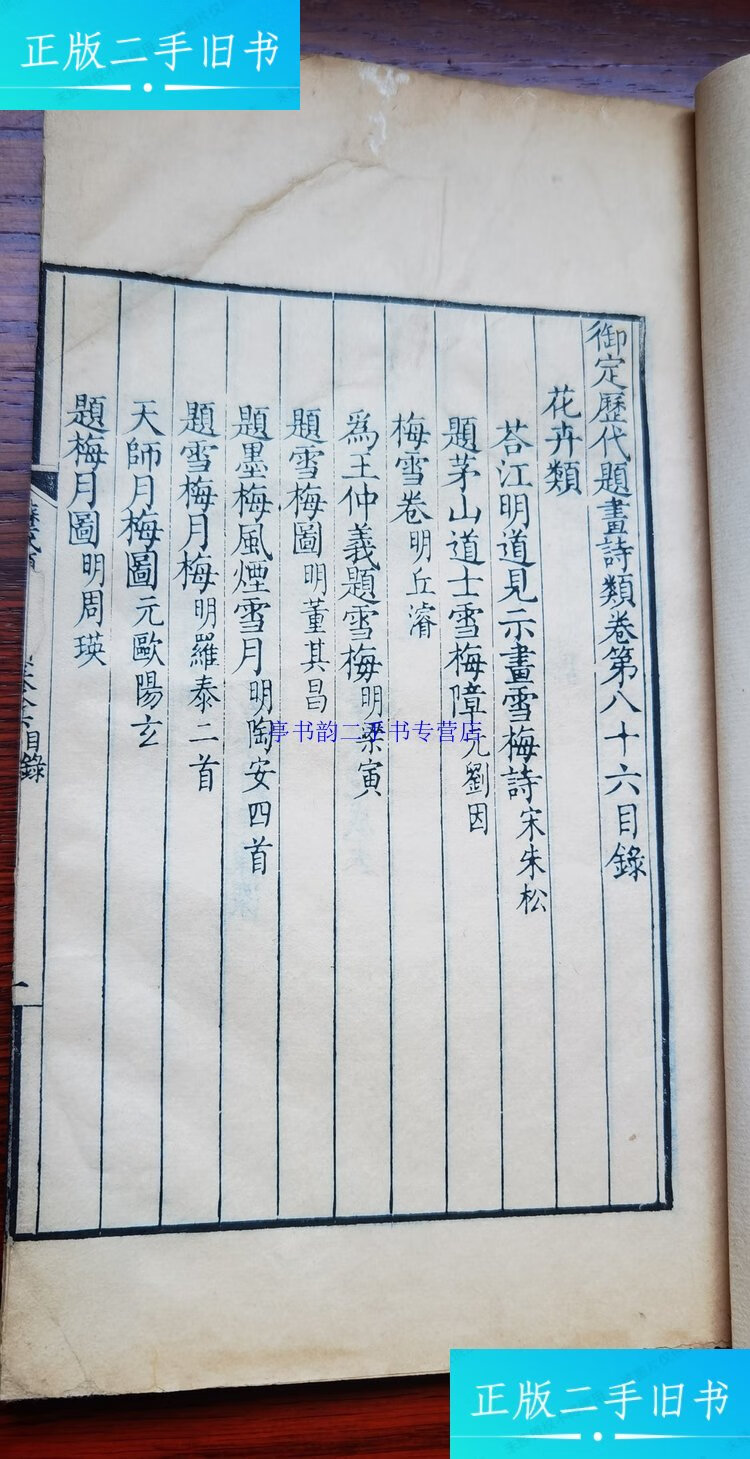 正版二手旧书
御定歷代題畫詩類卷第八十六目錄
花卉類
荅江明道見示畫雪梅詩宋朱松
題茅山道士雪梅障元劉因
梅雪卷明丘濬
為王仲義題雪梅明梁寅
題雪梅圖明董其昌
題墨梅風煙雪月明陶安四首
題雪梅月梅明羅泰二首
天師月梅圖元歐陽玄
題梅月圖明周瑛
目錄
一
亭书韵二手书专营店
正版二手旧书